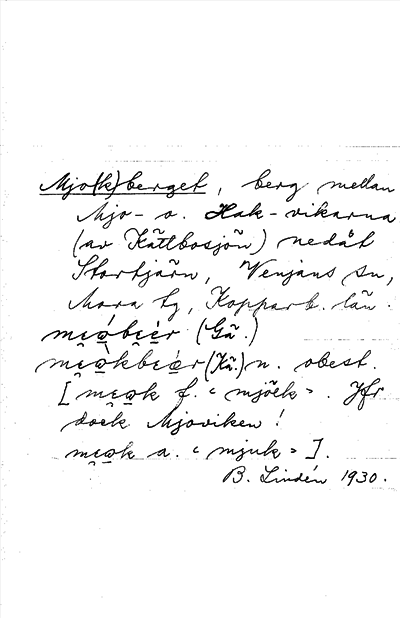 Mjo(k)berget, berg mellan
Mjo- o. Hak-vikarna
(av Kättbosjön) nedåt
Stortjärn, Venjans sn,
Mora tg, Kopparb. län.
(Gä.)
(Kä.) n. obest.
[ f. "mjölk". Jfr
dock Mjoviken!
a. "mjuk"].
B. Lindén 1930.